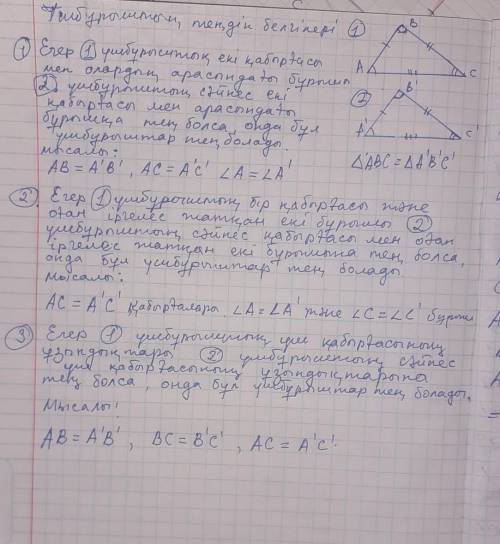 Үшбұрыштың теңдік белгілері ①
① Егер ① үшбұрыштың екі қабырғасы
мен олардың арасындағы бұрышы
② үшбұрыштың сәйкес екі
қабырғасы мен арасындағы
бұрышқа тең болса, онда бұл
үшбұрыштар тең болады.
мысалы:
AB = A'B', AC = A'C' ∠A = ∠A'
B
A
C
②
B'
A'
C'
△ABC = △A'B'C'
② Егер ① үшбұрыштың бір қабырғасы және
оған іргелес жатқан екі бұрышы ②
үшбұрыштың сәйкес қабырғасы мен оған
іргелес жатқан екі бұрышына тең болса,
онда бұл үшбұрыштар тең болады
мысалы:
AC = A'C' қабырғалары, ∠A = ∠A' және ∠C = ∠C' бұрыш
③ Егер ① үшбұрыштың үш қабырғасының
ұзындықтары ② үшбұрыштың сәйкес
үш қабырғасының ұзындықтарына
тең болса, онда бұл үшбұрыштар тең болады.
Мысалы:
AB = A'B', BC = B'C', AC = A'C'